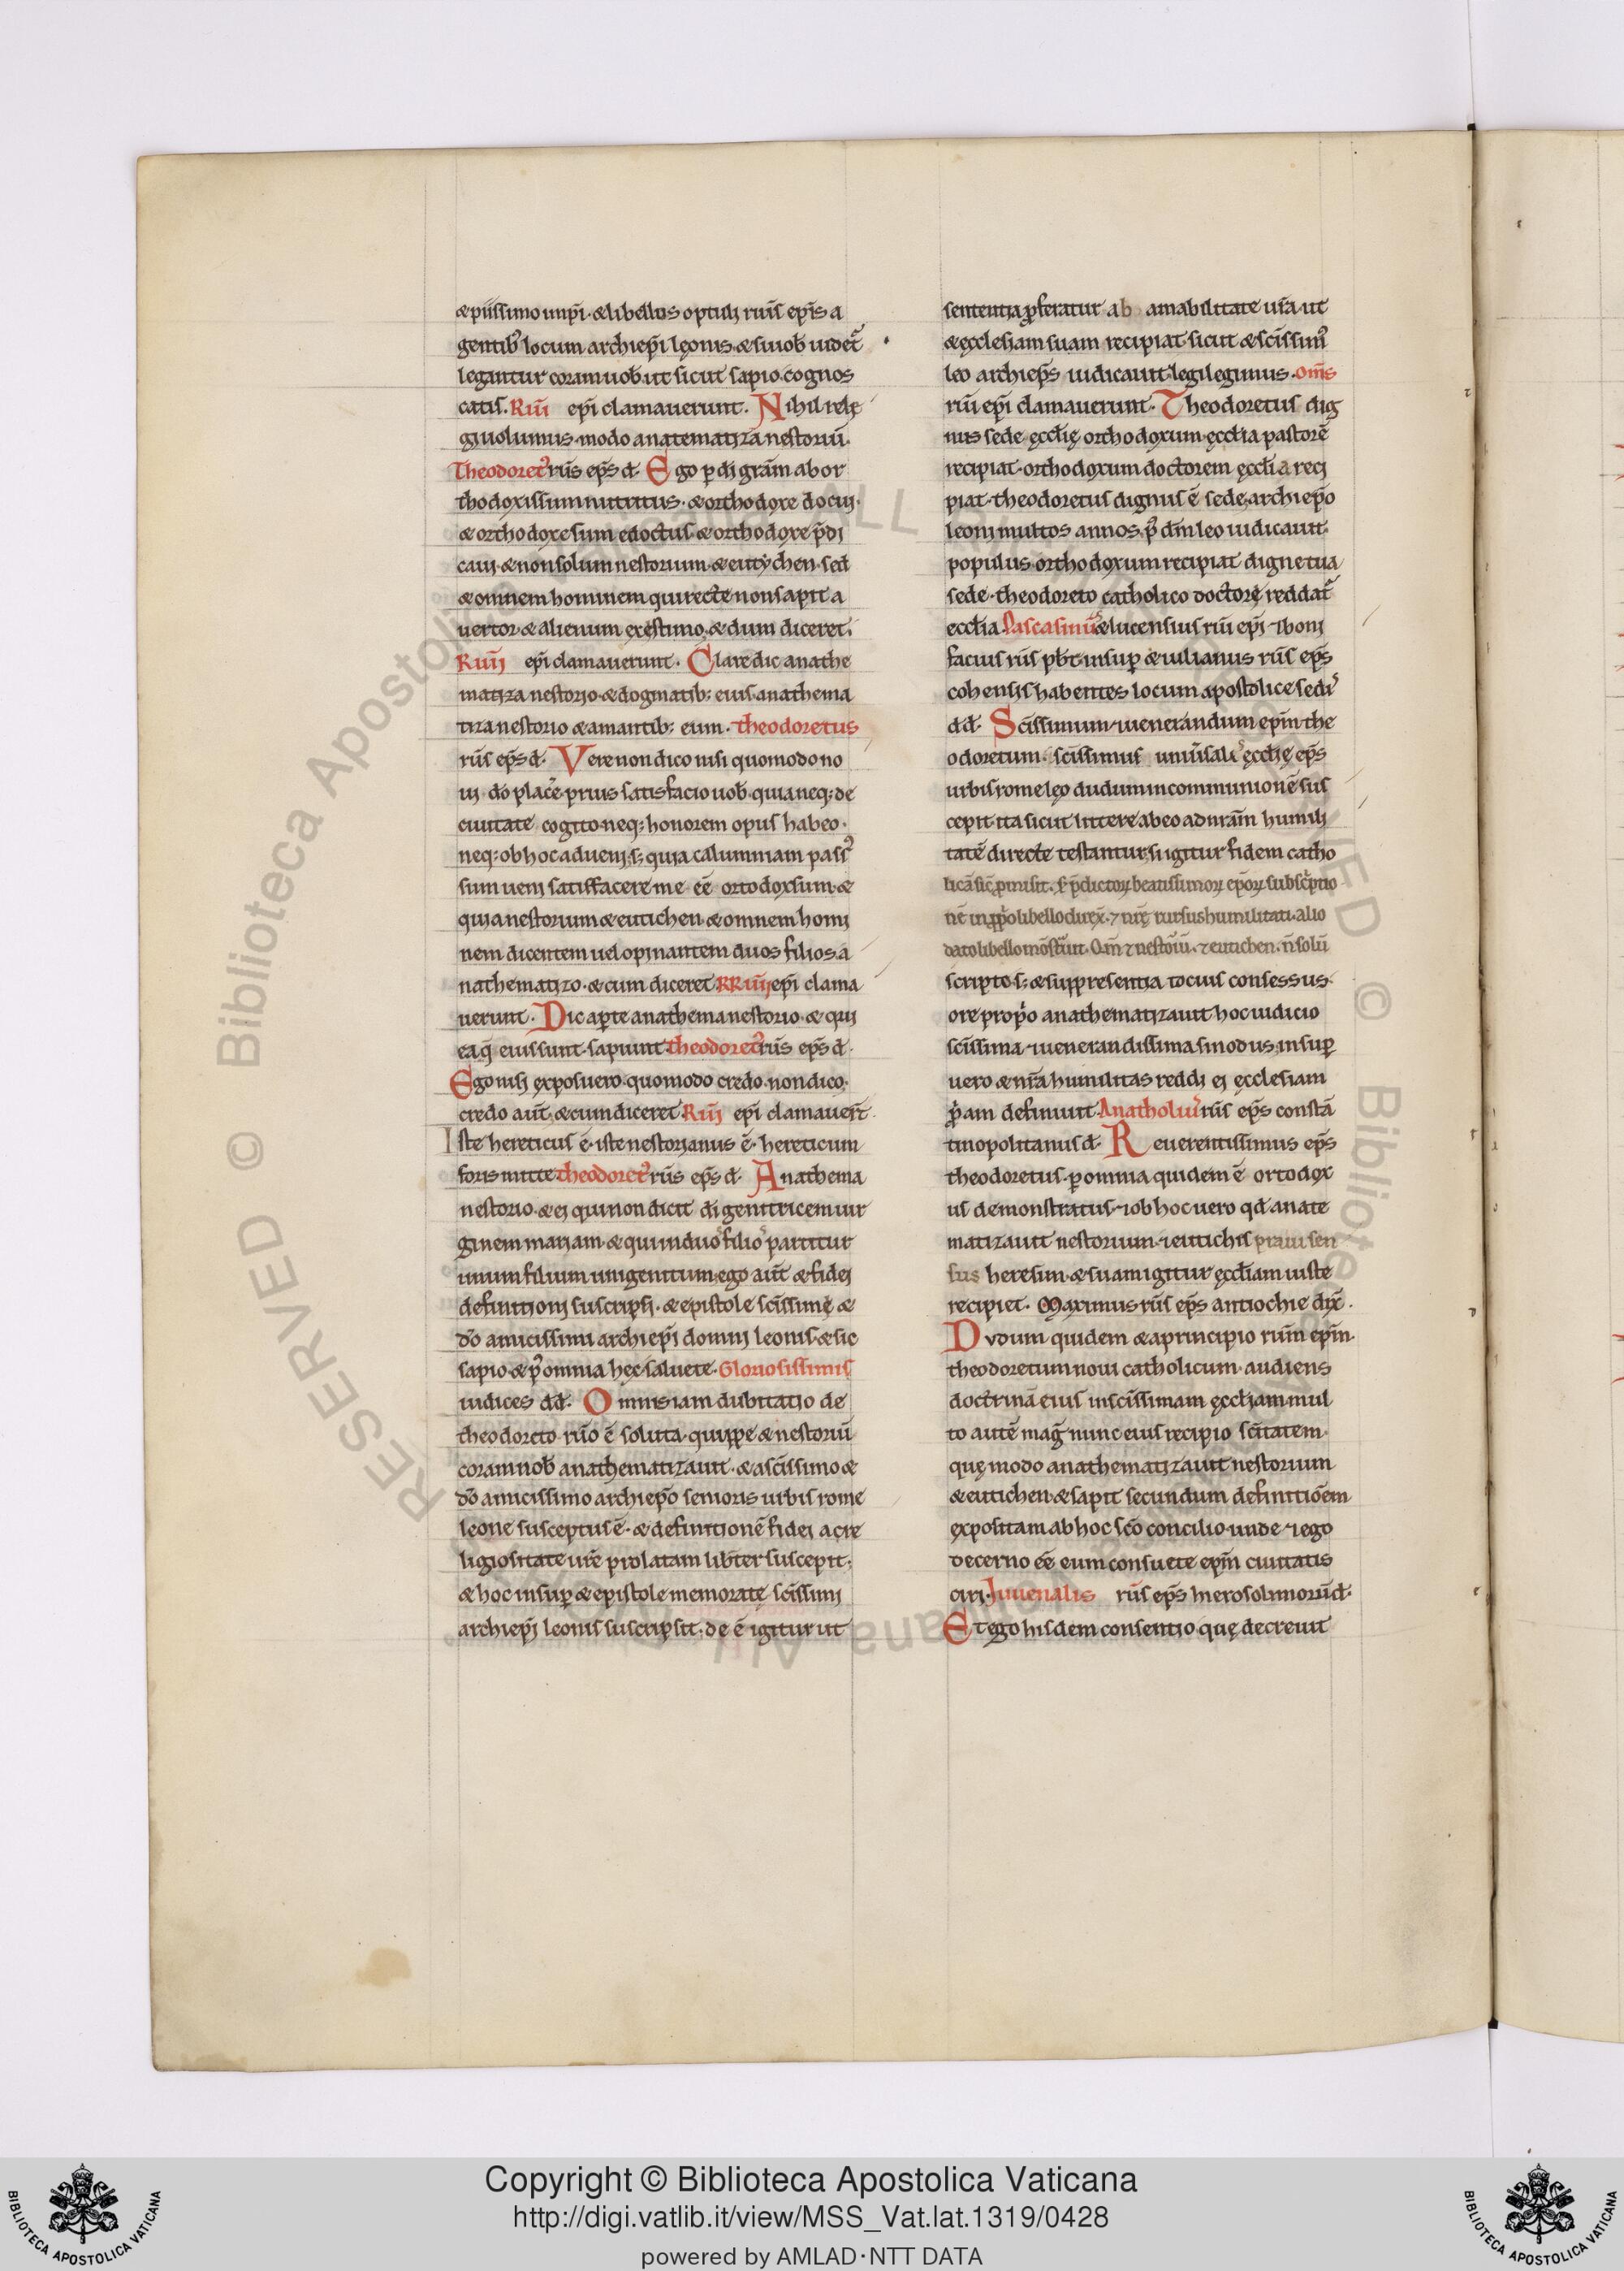 &piissimo impr̄i·&libellos optuli ruīs ep̄is a
gentib; locum archiep̄i lęonis·&siuob̄ uidet̄
legantur coramuob̄·ut sicut sapio·cognos
catis. Riūi ep̄i clamauerunt. Nihil relę
giuolumus·modo anatematiza nestoriū·
Theodoret᾽ rūs ep̄s d̄· Ego p̱ dī gr̄am abor
thodoxissum nutritus·&orthodoxe docui·
&orthodoxe sum edoctus·&orthodoxe p̄di
caui·&nonsolum nestorium·&eutychen·sed
&omnem hominem quirecte nonsapit a
uertor·&alienum exęstimo·&dum diceret·
Riūi ep̄i clamauerunt· Clare dic anathe
matiza nestorio·&dogmatib; eius·anathema
tiza nestorio &amantib; eum· theodoretus
rūs ep̄s d̄· Vere non dico nisi quomodo no
ui do placēe·prius satisfacio uob̄·quia neq; de
ciuitate cogito·neq; honorem opus habeo·
neq; ob hoc adueni·s; quia calumniam pass᾽
sum ueni satisfacere me ēe ortodoxsum·&
quia nestorium &eutichen·&omnem homi
nem dicentem uel opinantem duos filios·a
nathematizo·&cum diceret RRiūi ep̄i clama
uerunt· Dic aperte anathema nestorio·& qui
eaq̄ eius sunt·sapiunt theodoret᾽ rūs ep̄s d̄·
Ego nisi exposuero·quomodo credo·non dico·
credo aut̄·&cum diceret Riūi ep̄i clamauer̄t·
Iste hereticus ē·iste nestorianus ē·hereticum
foris mitte theodoret᾽ rūs ep̄s d̄· Anathema
nestorio·&ei qui non dicit di genitricem uir
ginem mariam·&qui in duo᾽ filio᾽ partitur
unum filium unigenitum·ego aut̄ &fidei
definitioni suscripsi·&epistole scissimę &
dō amicissimi archiep̄i domni leonis·&sic
sapio·&p᾽ omnia hęc saluete· Gloriosissimis
iudices dd̄· Omnis iam dubitatio de
theodoreto rūo ē soluta·quippe &nestoriū
coram nob̄ anathematizauit·&ascissimo &
dō amicissimo archiep̄o senioris urbis rome
leone susceptus ē·&definitionē fidei acre
ligiositate ur̄e prolatam libt̄er suscepit·
&hoc insup̱ &epistole memoratę scissimi
archiep̄i leonis suscripsit·de ē igitur ut
sententia p̱feratur ab amabilitate ur̄a·ut
&ęcclesiam suam recipiat·sicut &scissim᾽
leo archiep̄s iudicauit·legilegimus·om̄s
riūi ep̄i clamauerunt· Theodoretus dig
nus sede ęccl̄ię orthodoxum·ęccl̄ia pastorē
recipiat·orthodoxum doctorem ęccl̄ia reci
piat·theodoretus dignus ē sede·archiep̄o
leoni multos annos·p᾽ dm̄ leo iudicauit·
populus·orthodoxum recipiat digne tua
sede·theodoreto catholico doctorę reddat̄
eccl̄ia Pascasinu᾽ &lucensius riūi ep̄i ⁊boni
facius rūs pb̄t·insup̱ &iulianus rūs ep̄s
cohensis habentes locum apostolice sedi᾽
dd̄· Scissimum·⁊uenerandum ep̄m·the
odoretum· scissimus uniūsali᾽ ęccl̄ię ep̄s
urbis rome lęo dudum in communionē sus
cepit·ita sicut littere abeo ad nr̄am humili
tatē directe testantur·si igitur fidem catho
licā
scripto·s; &sup̱presentia tocius consessus·
ore prop̄o anathematizauit hoc iudicio
scissima·⁊uenerandissima sinodus·insup̱
uero &nr̄a humilitas reddi ei ęcclesiam
p̄pam definiuit·Anatholiu᾽ rūs ep̄s constā
tinopolitanus d̄· Reuerentissimus ep̄s
theodoretus·p̱ omnia quidem ē ortodox
us demonstratus·⁊ob hoc uero qd̄ anate
matizauit nestorium·⁊eutichis praui sen
sus heresim·&suam igitur ęccl̄iam iuste
recipiet· Maximus rūs ep̄s antiochie dix̄·
Dudum quidem &aprincipio ruīm ep̄m·
theodoretum noui catholicum·audiens
doctrinā eius in scissimam ęccl̄iam·mul
to autē mag᾽ nunc eius recipio sc̄itatem·
quę modo anathematizauit nestorium
&eutichen·&sapit secundum definitiōem
expositam ab hoc sc̄o concilio·unde ⁊ego
decerno ēe eum consuete ep̄m ciuitatis
ciri·Iuuenalis rūs ep̄s hierosolimorū d̄·
Et ego hisdem consentio quę decreuit
Copyright © Biblioteca Apostolica Vaticana
http://digi.vatlib.it/view/MSS_Vat.lat.1319/0428
powered by AMLAD·NTT DATA